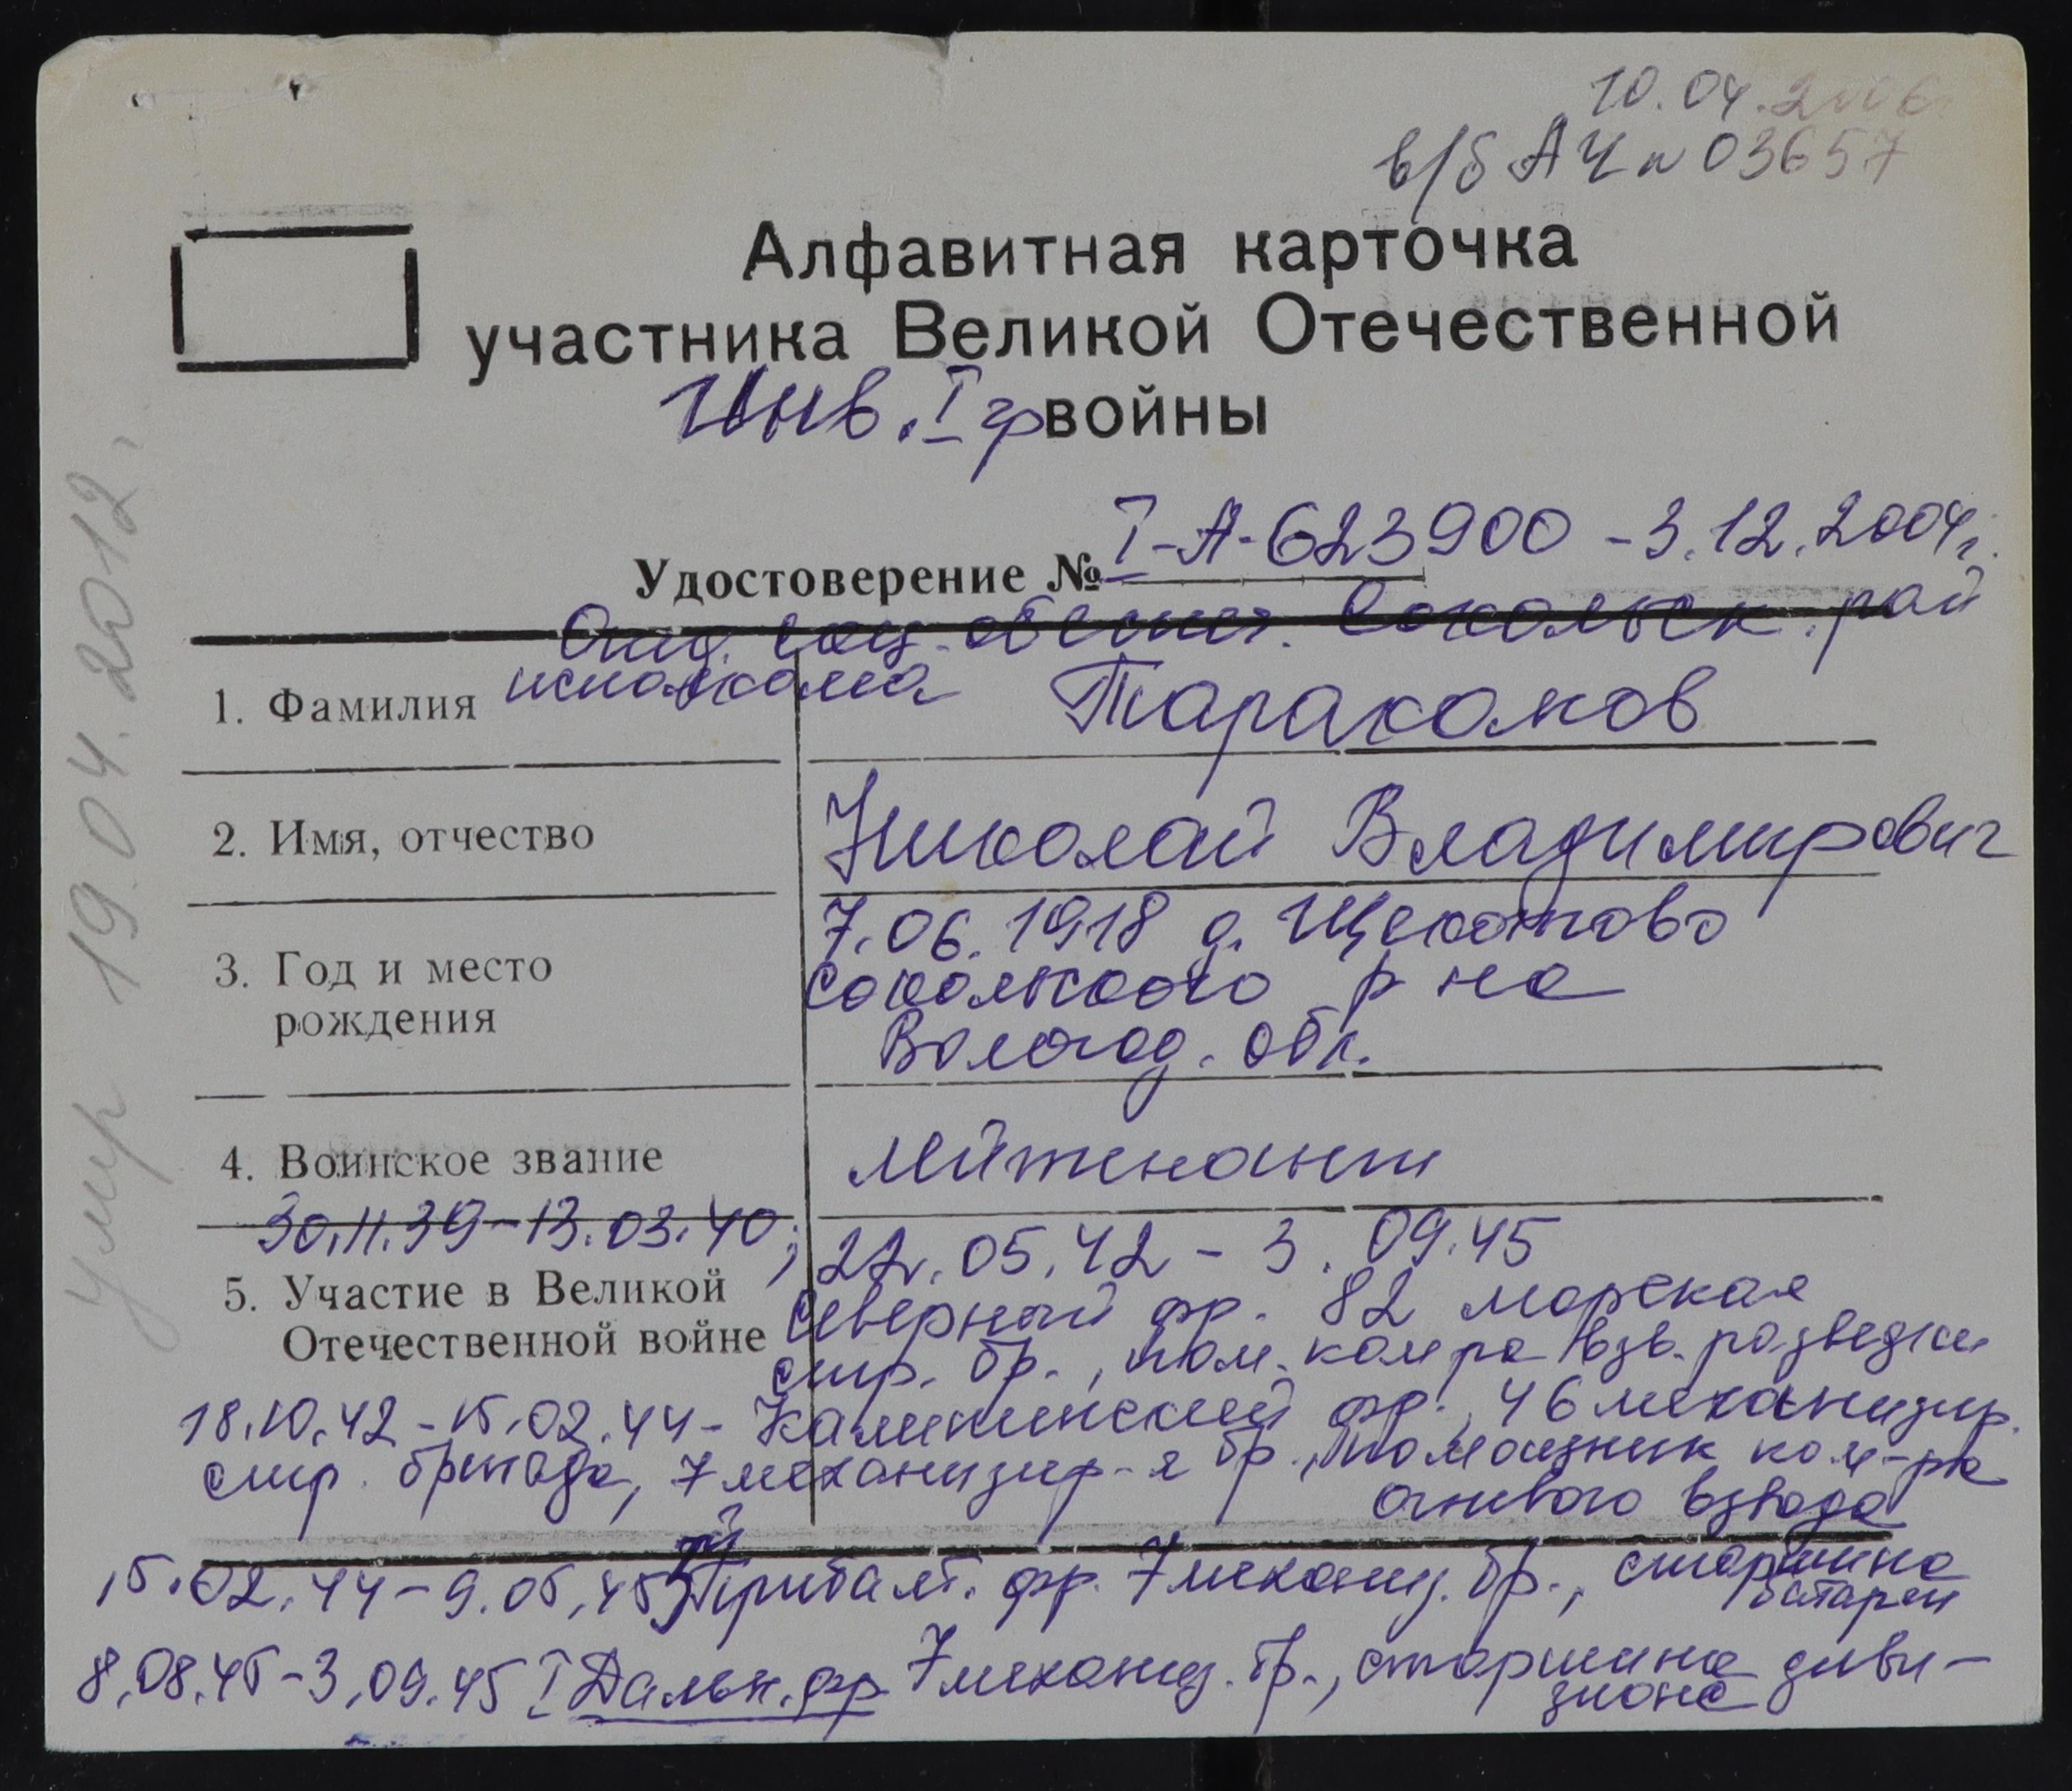 10.04.2006
в/б АЧ № 03657
Алфавитная карточка
участника Великой Отечественной
Инв. I гр войны
Удостоверение № I-А-623900 - 3.12.2004г.
соц. обеспеч. Сокольск. рай
исполкома
1. Фамилия Тараканов
2. Имя, отчество Николай Владимирович
3. Год и место рождения 7.06.1918 д. Щекотово
Сокольского р-на
Вологод. обл.
4. Воинское звание лейтенант
30.11.39-13.03.40; 22.05.42 - 3.09.45
5. Участие в Великой Отечественной войне Северный фр. 82 морская
стр. бр., пом. ком-ра взв. разведки
18.10.42-15.02.44- Калининский фр., 46 механизир.
стр. бригада, 7 механизир-я бр., помощник ком-ра
огневого взвода
15.02.44-9.05.45 Прибалт. фр. 7 механиз. бр., старшина
батареи
8.08.45-3.09.45 I Дальн. фр 7 механиз. бр., старшина диви-
зиона
умир 19.04.2012г.